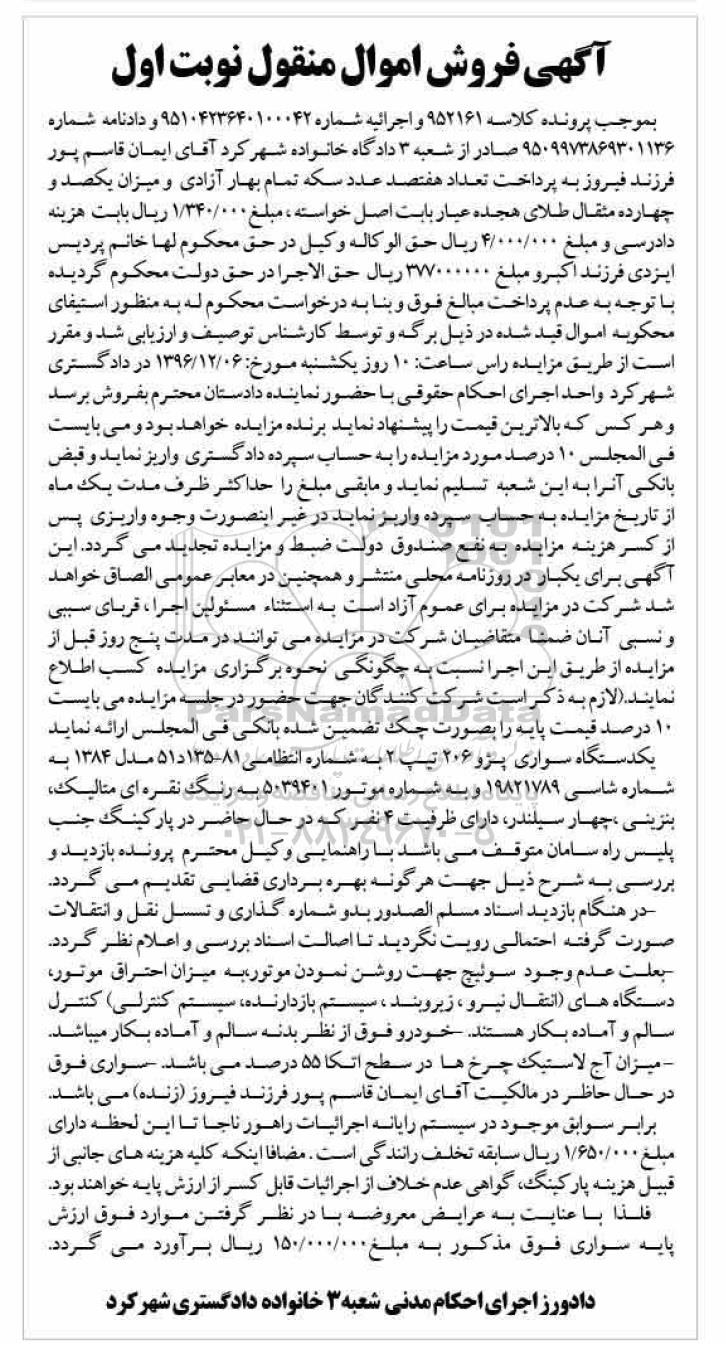 آگهی فروش اموال منقول نوبت اول
بموجب پرونده کلاسه ۹۵۲۱۶۱ و اجرائیه شماره ۹۵۱۰۴۲۳۶۴۰۱۰۰۰۴۲ و دادنامه شماره
۹۵۰۹۹۷۳۸۶۹۳۰۱۱۳۶ صادر از شعبه ۳ دادگاه خانواده شهرکرد آقای ایمان قاسم پور
فرزند فیروز به پرداخت تعداد هفتصد عدد سکه تمام بهار آزادی و میزان یکصد و
چهارده مثقال طلای هجده عیار بابت اصل خواسته ، مبلغ ۱/۳۴۰/۰۰۰ ریال بابت هزینه
دادرسی و مبلغ ۴/۰۰۰/۰۰۰ ریال حق الوکاله وکیل در حق محکوم لها خانم پردیس
ایزدی فرزند اکبر و مبلغ ۳۷۷۰۰۰۰۰۰ ریال حق الاجرا در حق دولت محکوم گردیده
با توجه به عدم پرداخت مبالغ فوق و بنا به درخواست محکوم له به منظور استیفای
محکوبه اموال قید شده در ذیل برگه و توسط کارشناس توصیف و ارزیابی شد و مقرر
است از طریق مزایده راس ساعت: ۱۰ روز یکشنبه مورخ: ۱۳۹۶/۱۲/۰۶ در دادگستری
شهرکرد واحد اجرای احکام حقوقی با حضور نماینده دادستان محترم بفروش برسد
و هر کس که بالاترین قیمت را پیشنهاد نماید برنده مزایده خواهد بود و می بایست
فی المجلس ۱۰ درصد مورد مزایده را به حساب سپرده دادگستری واریز نماید و قبض
بانکی آنرا به این شعبه تسلیم نماید و مابقی مبلغ را حداکثر ظرف مدت یک ماه
از تاریخ مزایده به حساب سپرده واریز نماید در غیر اینصورت وجوه واریزی پس
از کسر هزینه مزایده به نفع صندوق دولت ضبط و مزایده تجدید می گردد. این
آگهی برای یکبار در روزنامه محلی منتشر و همچنین در معابر عمومی الصاق خواهد
شد شرکت در مزایده برای عموم آزاد است به استثناء مسئولین اجرا ، قربای سببی
و نسبی آنان ضمنا متقاضیان شرکت در مزایده می توانند در مدت پنج روز قبل از
مزایده از طریق این اجرا نسبت به چگونگی نحوه برگزاری مزایده کسب اطلاع
نمایند.(لازم به ذکر است شرکت کنندگان جهت حضور در جلسه مزایده می بایست
۱۰ درصد قیمت پایه را بصورت چک تضمین شده بانکی فی المجلس ارائه نماید
یکدستگاه سواری پژو ۲۰۶ تیپ ۲ به شماره انتظامی ۸۱-۱۳۵د۵۱ مدل ۱۳۸۴ به
شماره شاسی ۱۹۸۲۱۷۸۹ و به شماره موتور ۵۰۳۹۴۰۱ به رنگ نقره ای متالیک،
بنزینی ،چهار سیلندر، دارای ظرفیت ۴ نفر که در حال حاضر در پارکینگ جنب
پلیس راه سامان متوقف می باشد با راهنمایی وکیل محترم پرونده بازدید و
بررسی به شرح ذیل جهت هرگونه بهره برداری قضایی تقدیم می گردد.
-در هنگام بازدید اسناد مسلم الصدور بدو شماره گذاری و تسسل نقل و انتقالات
صورت گرفته احتمالی رویت نگردید تا اصالت اسناد بررسی و اعلام نظر گردد.
-بعلت عدم وجود سوئیچ جهت روشن نمودن موتور،به میزان احتراق موتور،
دستگاه های (انتقال نیرو ، زیروبند ، سیستم بازدارنده، سیستم کنترلی) کنترل
سالم و آماده بکار هستند. -خودرو فوق از نظر بدنه سالم و آماده بکار میباشد.
- میزان آج لاستیک چرخ ها در سطح اتکا ۵۵ درصد می باشد. -سواری فوق
در حال حاظر در مالکیت آقای ایمان قاسم پور فرزند فیروز (زنده) می باشد.
برابر سوابق موجود در سیستم رایانه اجرائیات راهور ناجا تا این لحظه دارای
مبلغ ۱/۶۵۰/۰۰۰ ریال سابقه تخلف رانندگی است . مضافا اینکه کلیه هزینه های جانبی از
قبیل هزینه پارکینگ، گواهی عدم خلاف از اجرائیات قابل کسر از ارزش پایه خواهند بود.
فلذا با عنایت به عرایض معروضه با در نظر گرفتن موارد فوق ارزش
پایه سواری فوق مذکور به مبلغ ۱۵۰/۰۰۰/۰۰۰ ریال برآورد می گردد.
دادورز اجرای احکام مدنی شعبه ۳ خانواده دادگستری شهرکرد
ParsNamadData
۰۲۱-۸۸۳۴۹۶۷۰-۵